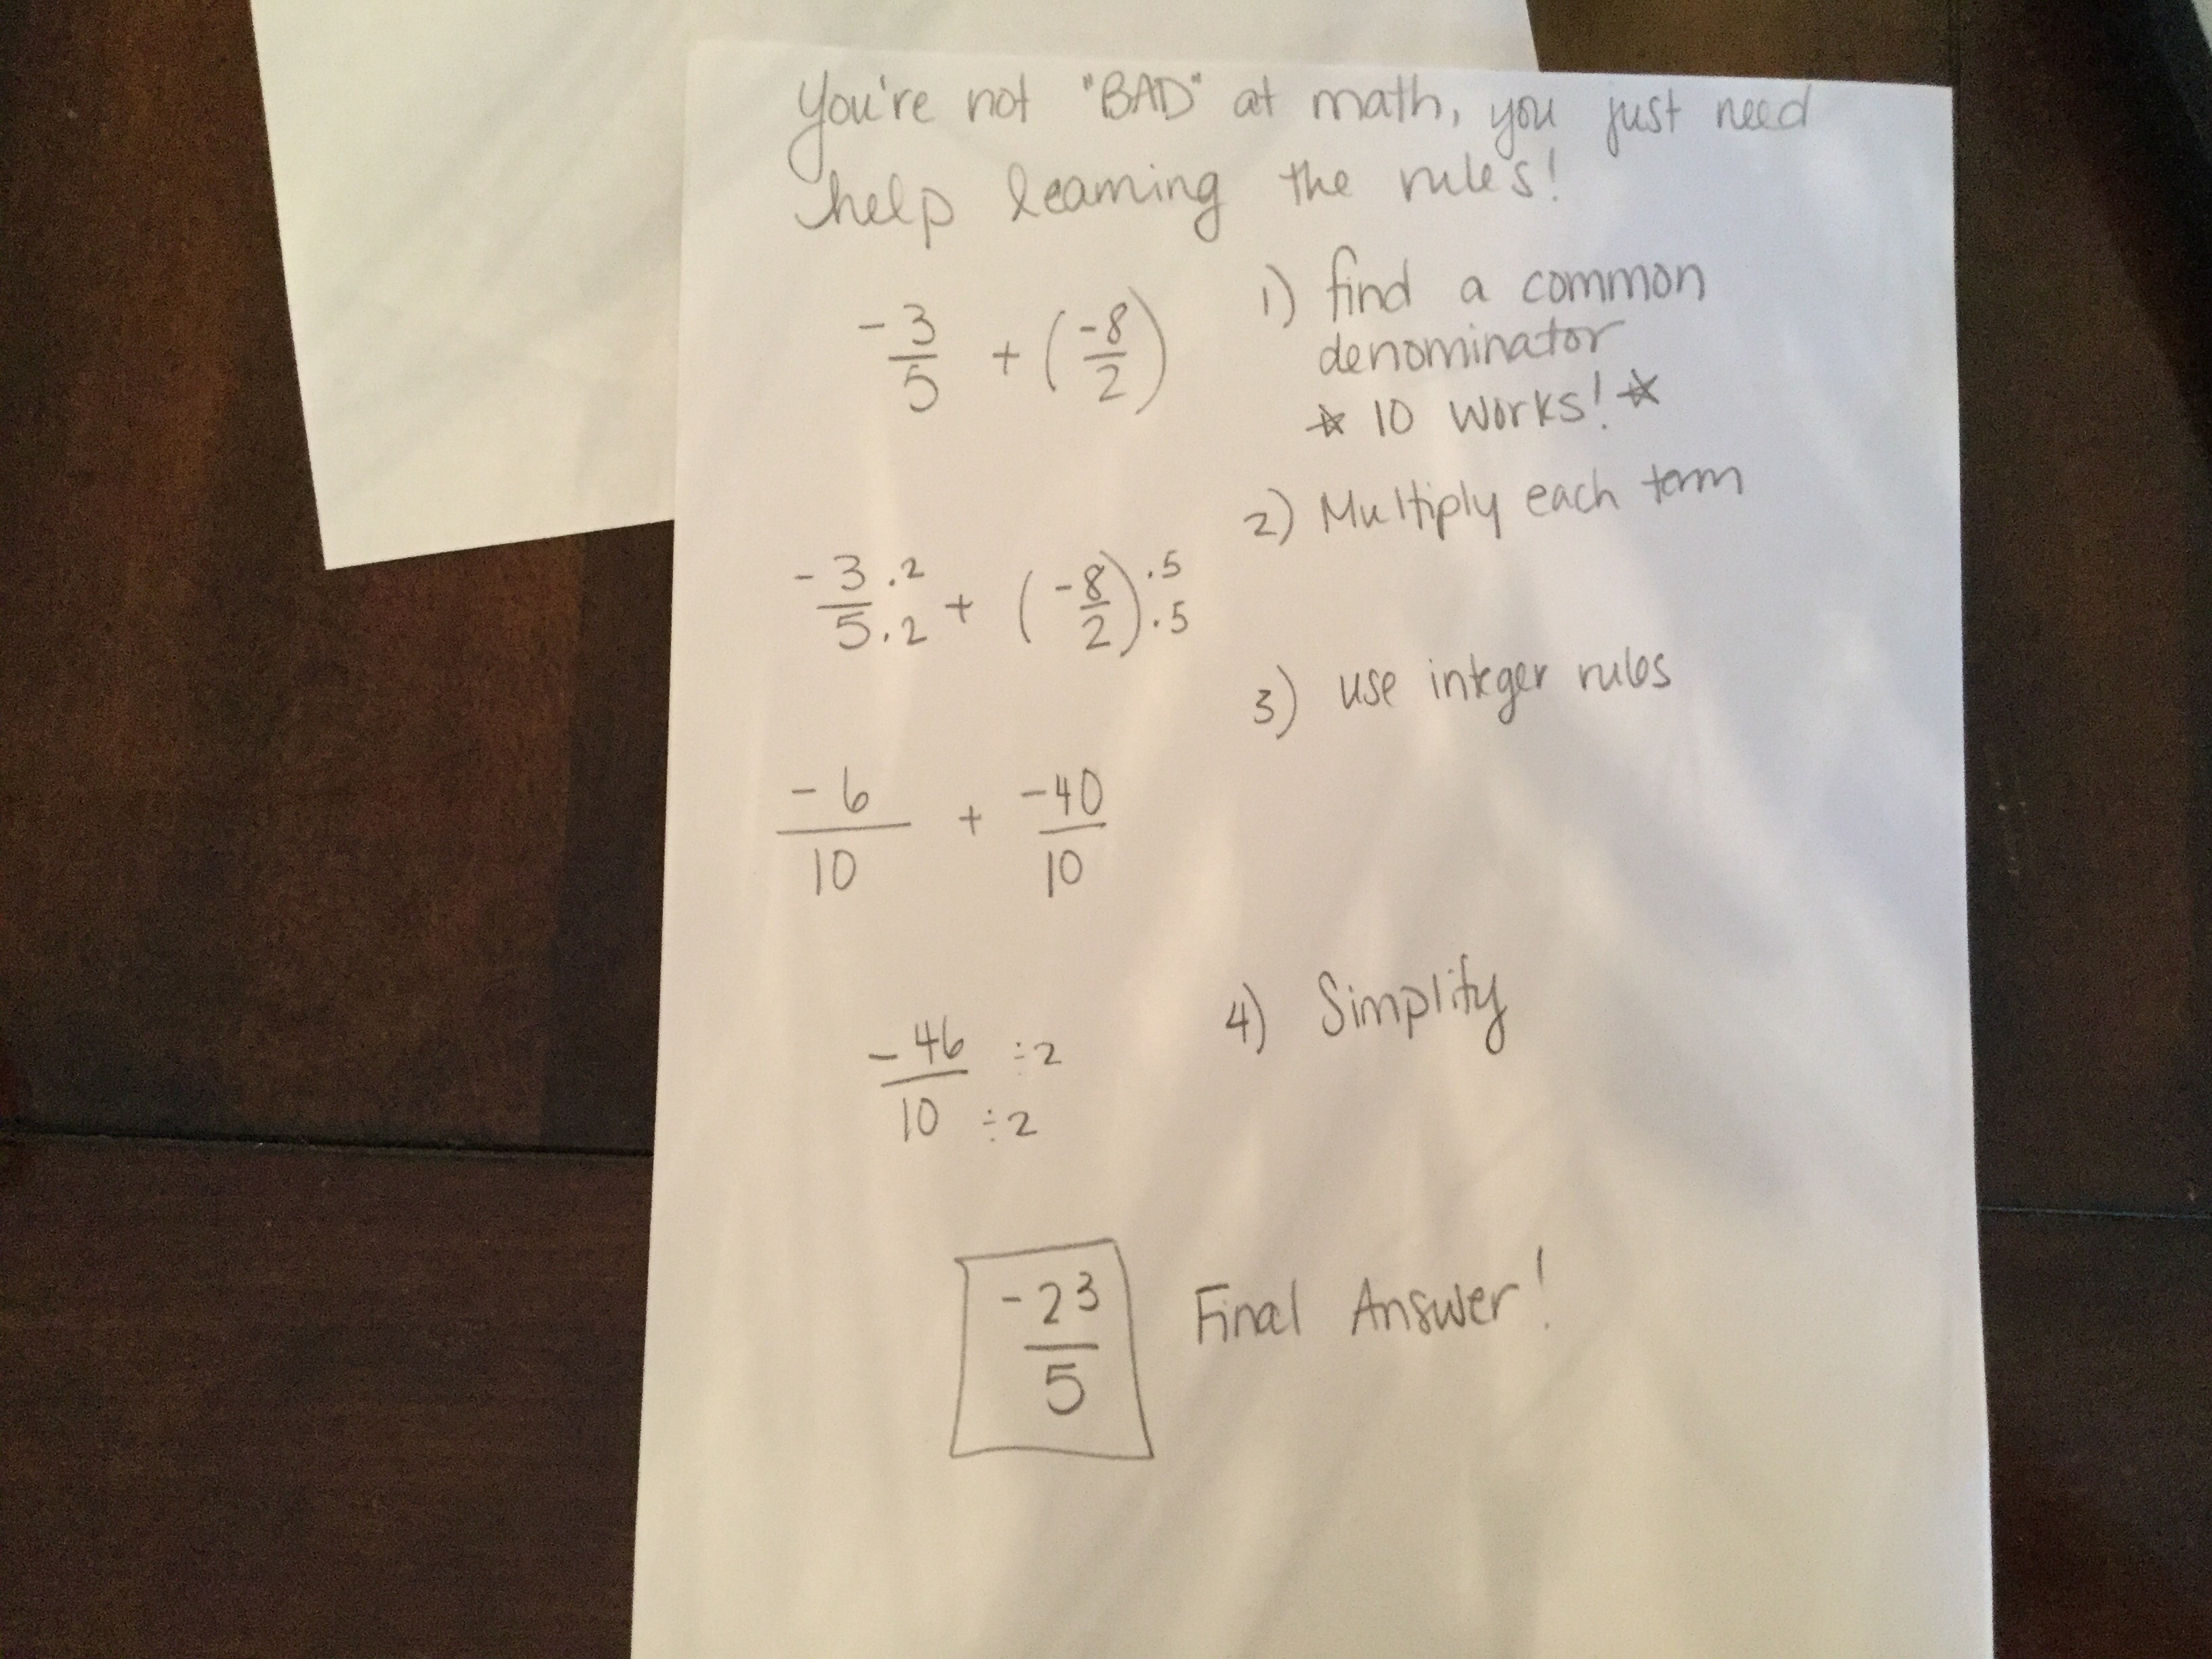 You're not "BAD" at math, you just need
help learning the rules!
-3/5 + (-8/2)
1) find a common
denominator
☆ 10 works! ☆
2) Multiply each term
-3·2/5·2 + (-8/2)·5/·5
3) use integer rules
-6/10 + -40/10
4) Simplify
-46/10 ÷2/÷2
-23/5 Final Answer!